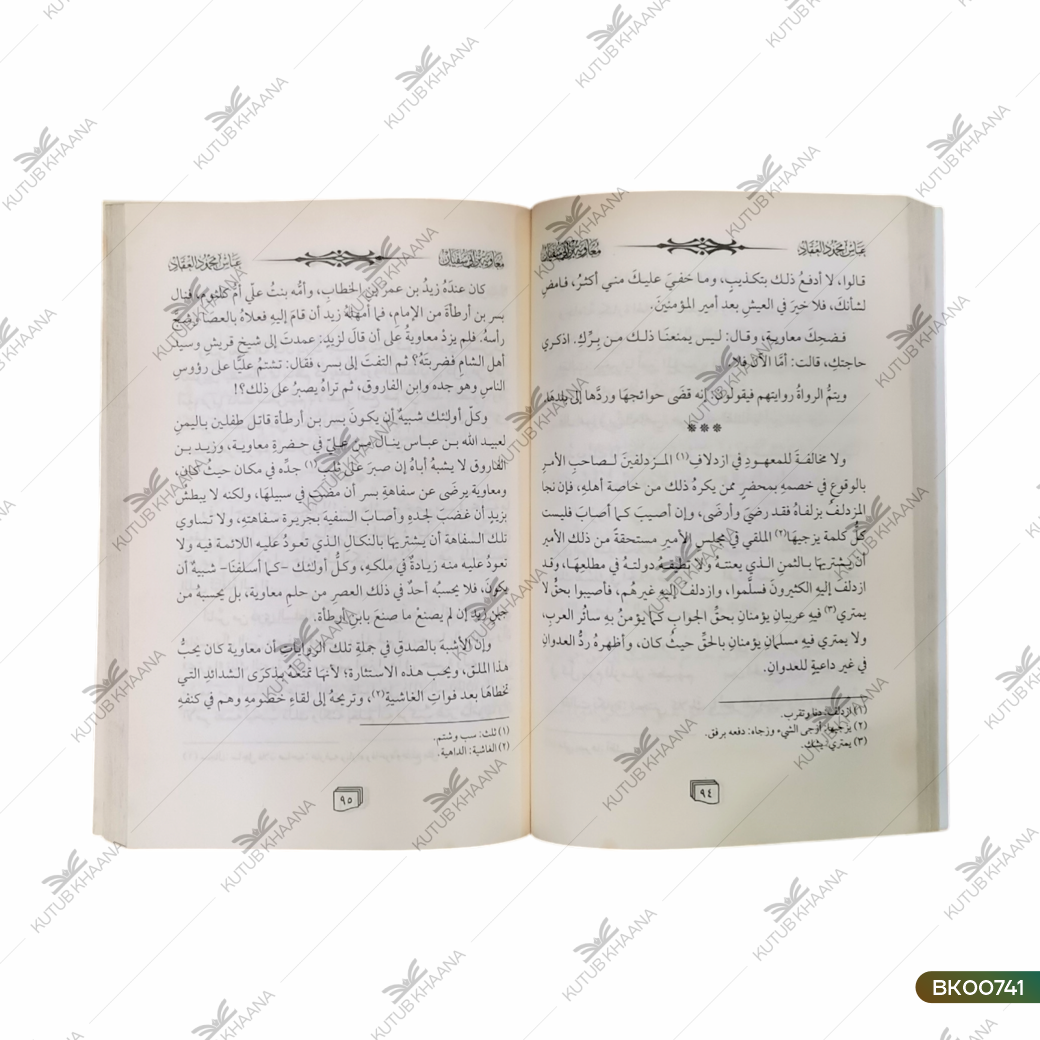 معاوية بن أبي سفيان
عباس محمود العقاد
قالوا، لا أدفعُ ذلك بتكذيبٍ، وما خفيَ عليكَ مني أكثرُ، فامضِ
لشأنكَ، فلا خيرَ في العيشِ بعد أمير المؤمنينَ.
فضحكَ معاوية، وقال: ليس يمنعنَا ذلك من بِرِّكِ. اذكري
حاجتكِ، قالت: أمَّا الآن فلا.
ويتمُّ الرواةُ روايتهم فيقولون: إنه قضَى حوائجهَا وردَّها إلى بلدهَا.
***
ولا مخالفةَ للمعهودِ في ازدلافِ(١) المزدلفينَ لصاحبِ الأمرِ
بالوقوعِ في خصمهِ بمحضرٍ ممن يكرهُ ذلك من خاصة أهلهِ، فإن نجا
المزدلفُ بزلفاهُ فقد رضيَ وأرضَى، وإن أصيبَ كما أصابَ فليست
كلُّ كلمة يزجيهَا(٢) الملقي في مجلسِ الأميرِ مستحقة من ذلك الأمير
أن يشتريهَا بالثمنِ الذي يعنتهُ ولا تطيقهُ دولتهُ في مطلعهَا، وقد
ازدلفَ إليهِ الكثيرونَ فسلَّموا، وازدلفَ إليهِ غيرهُم، فأصيبوا بحقٍّ لا
يمتري(٣) فيهِ عربيانِ يؤمنانِ بحقِّ الجوابِ كما يؤمنُ بهِ سائرُ العربِ،
ولا يمتري فيه مسلمانِ يؤمنانِ بالحقِّ حيثُ كان، وأظهرهُ ردُّ العدوانِ
في غير داعيةٍ للعدوانِ.
(١) ازدلف: دنا وتقرب.
(٢) يزجيها: أزجى الشيء وزجاه: دفعه برفق.
(٣) يمتري: يشك.
٩٤
معاوية بن أبي سفيان
عباس محمود العقاد
كان عندَهُ زيدُ بن عمر بن الخطابِ، وأمُّه بنتُ عليٍّ أم كلثوم، فنال
بسر بن أرطأةَ من الإمامِ، فما أمهلهُ زيد أن قامَ إليهِ فعلاهُ بالعصا وشجَّ
رأسهُ. فلم يزدْ معاويةُ على أن قالَ لزيدٍ: عمدتَ إلى شيخِ قريشٍ وسيد
أهل الشامِ فضربتَهُ؟ ثم التفتَ إلى بسر، فقال: تشتمُ عليًّا على رؤوسِ
الناسِ وهو جده وابن الفاروق، ثم تراهُ يصبرُ على ذلك؟!
وكلّ أولئك شبيهٌ أن يكونَ بسر بن أرطأة قاتل طفلين باليمنِ
لعبيد الله بن عباس ينال من عليٍّ في حضرةِ معاوية، وزيد بن
الفاروق لا يشبهُ أباهُ إن صبرَ على ثلبِ(١) جدِّه في مكان حيثُ كان،
ومعاوية يرضَى عن سفاهةِ بسر أن مضت في سبيلهَا، ولكنه لا يبطشُ
بزيدٍ أن غضبَ لجدهِ وأصابَ السفية بجريرة سفاهتهِ، ولا تساوي
تلك السفاهة أن يشتريهَا بالنكالِ الذي تعودُ عليه اللائمة فيه ولا
تعودُ عليه منه زيادةٌ في ملكهِ، وكلُّ أولئك -كما أسلفنَا- شبيهٌ أن
يكونَ، فلا يحسبُه أحدٌ في ذلك العصرِ من حلمِ معاوية، بل يحسبهُ من
جبنِ زيد إن لم يصنعْ ما صنعَ بابن أرطأة.
وإن الأشبهَ بالصدقِ في جملةِ تلك الروايات أن معاوية كان يحبُّ
هذا الملق، ويحب هذه الاستثارة؛ لأنها تمتعُه بذكرَى الشدائدِ التي
تخطاهَا بعد فوات الغاشيةِ(٢)، وتريحهُ إلى لقاءِ خصومهِ وهم في كنفهِ
(١) ثلث: سب وشتم.
(٢) الغاشية: الداهية.
٩٥
KUTUB KHAANA
BK00741